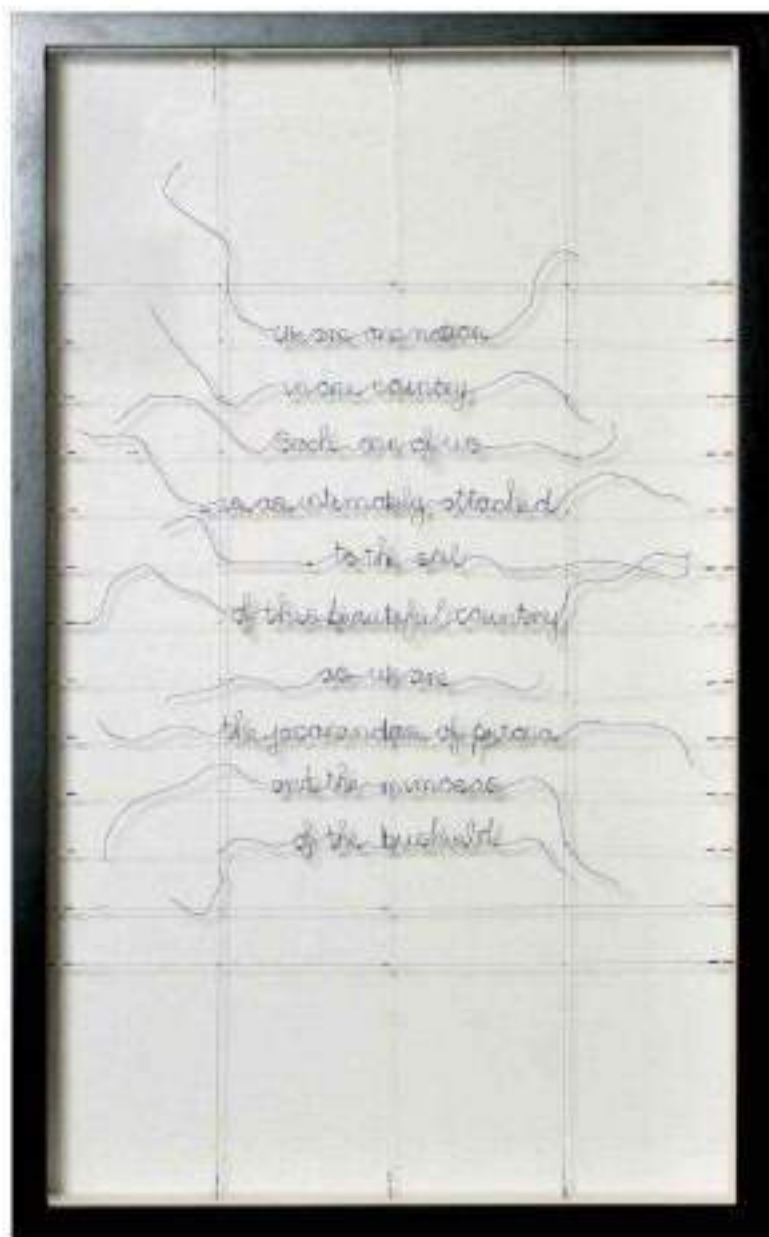 We are one nation
in one country.
Each one of us
is as intimately attached
to the soil
of this beautiful country
as we are
the jacarandas of pretoria
and the mimosas
of the bushveld